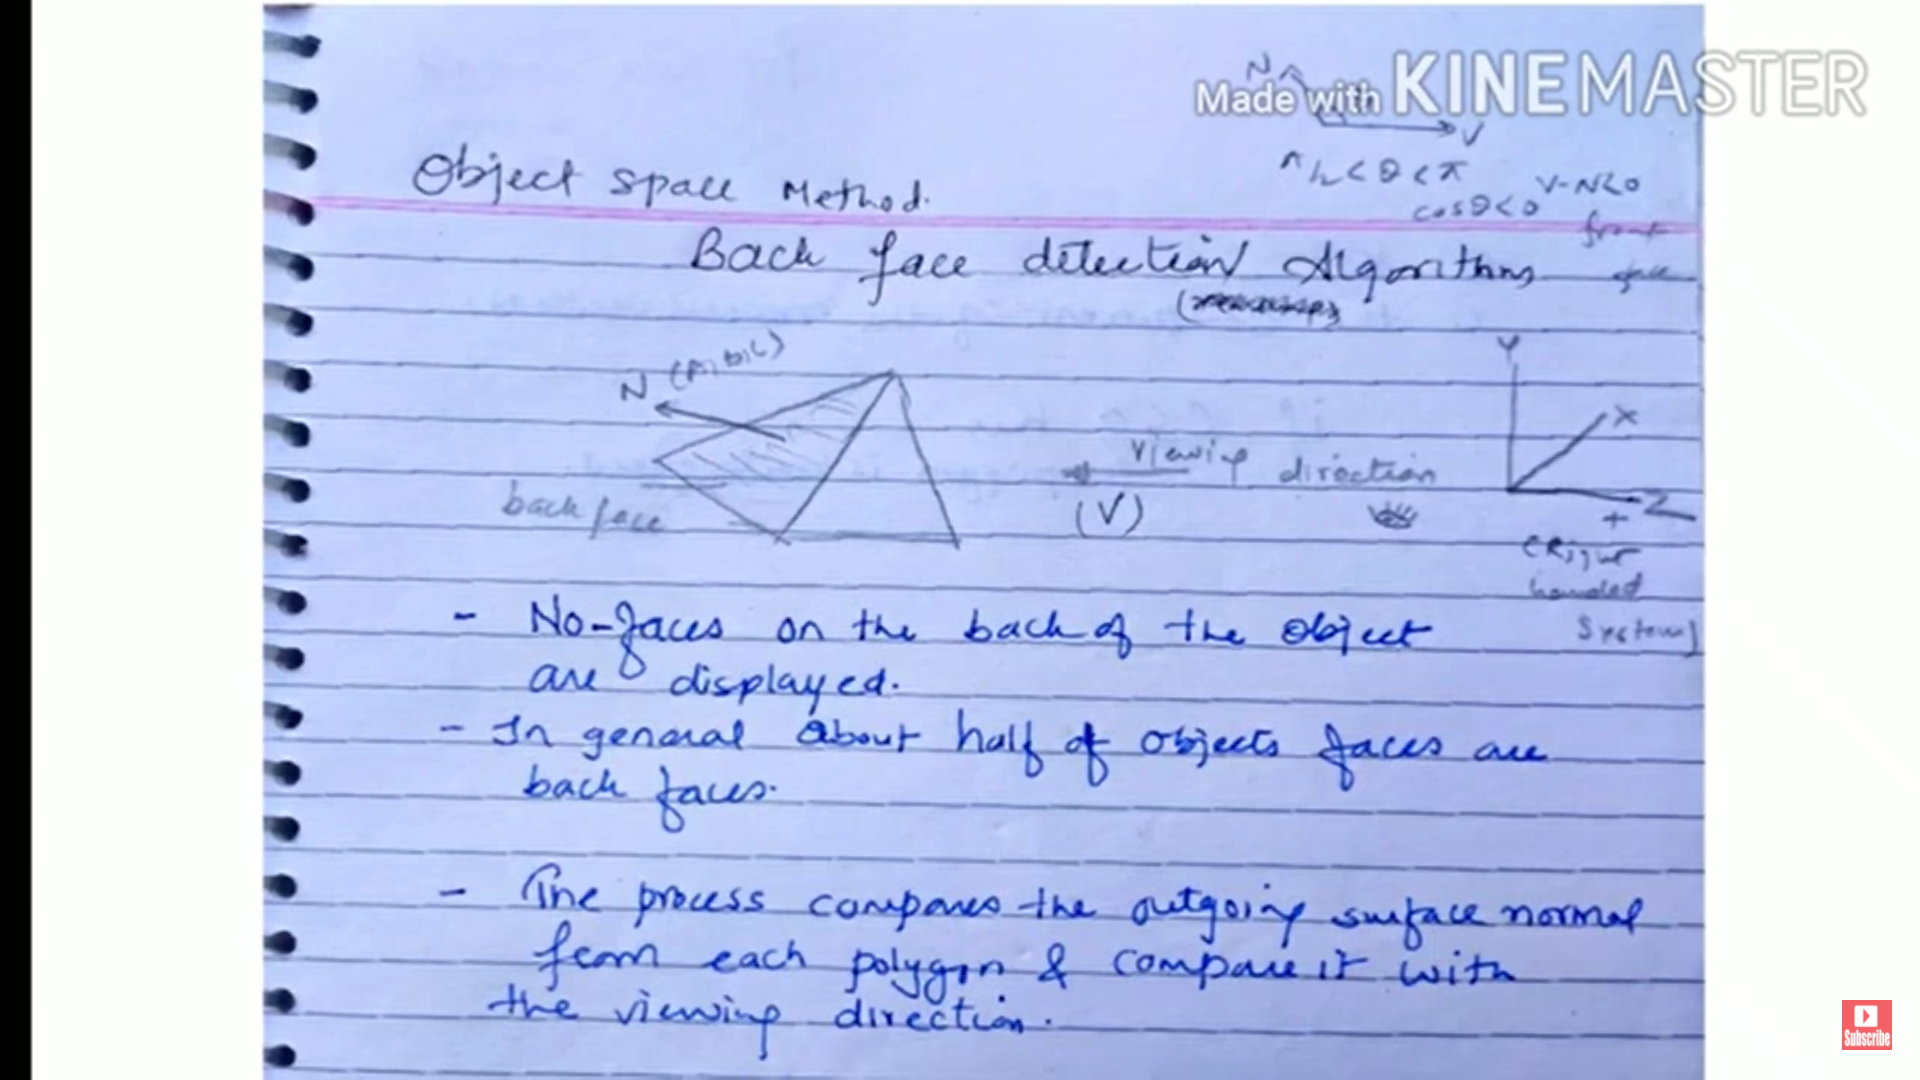 N
Made with KINEMASTER
V
π/2 < θ < π
cosθ<0
V-N<0
front
face
Object space Method.
Back face detection Algorithm
N (A,B,C)
Y
X
Z
+
viewing direction
(V)
back face
(Right
handed
System)
- No-faces on the back of the object
are displayed.
- In general About half of objects faces are
back faces.
- The process compares the outgoing surface normal
from each polygon & compare it with
the viewing direction.
Subscribe